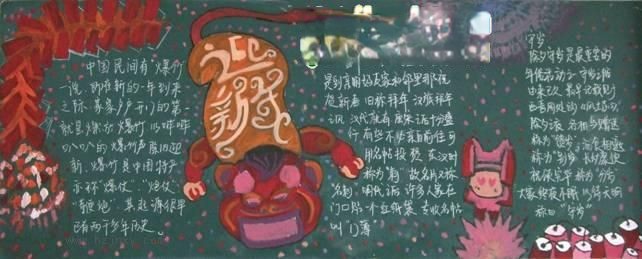 中国民间有"爆竹
一说，即在新的一年到来
之际，家家户户开门的第一
就是燃放爆竹，以哔哔
叭叭的爆竹声除旧迎
新。爆竹是中国特产
亦称"爆仗"、"炮仗"、
"鞭炮"，其起源很早
已有两千多年历史。
迎新年
是到亲朋好友家和邻里那祝
贺新春，旧称拜年。汉族拜年
汉代就有。唐宋之后十分盛
行，有些不必亲自前往，可
用名帖投贺。东汉时
称为"刺"，故名片又称
名刺。明代之后，许多人家在
门口贴一个红纸袋，专收名帖
叫"门簿"
守岁
除夕守岁是最重要的
年俗活动之一，守岁之俗
由来已久。最早记载见于
西晋周处的《风土志》
除夕之夜，各相与赠送
称为"馈岁"；酒食相邀
称为"别岁"；长幼聚饮
祝颂完备，称为"分岁"
大家终夜不眠，以待天明
称曰"守岁"